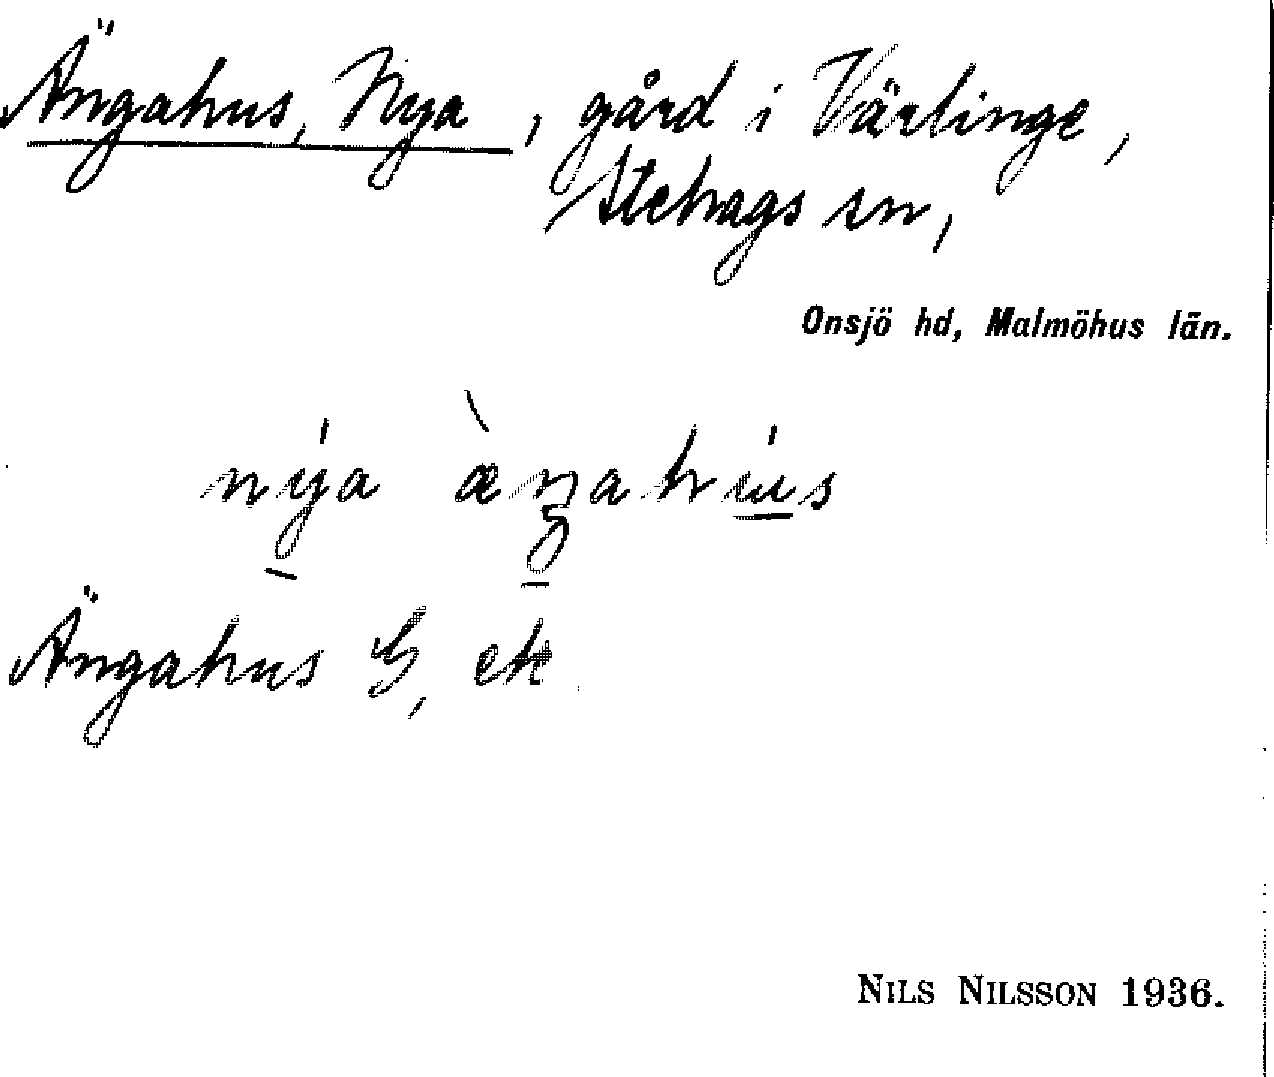 Ängahus, Nya, gård i Värlinge,
Stehags sn,
Onsjö hd, Malmöhus län.
nýa æ̀ŋahús
Ängahus G, ek
NILS NILSSON 1936.